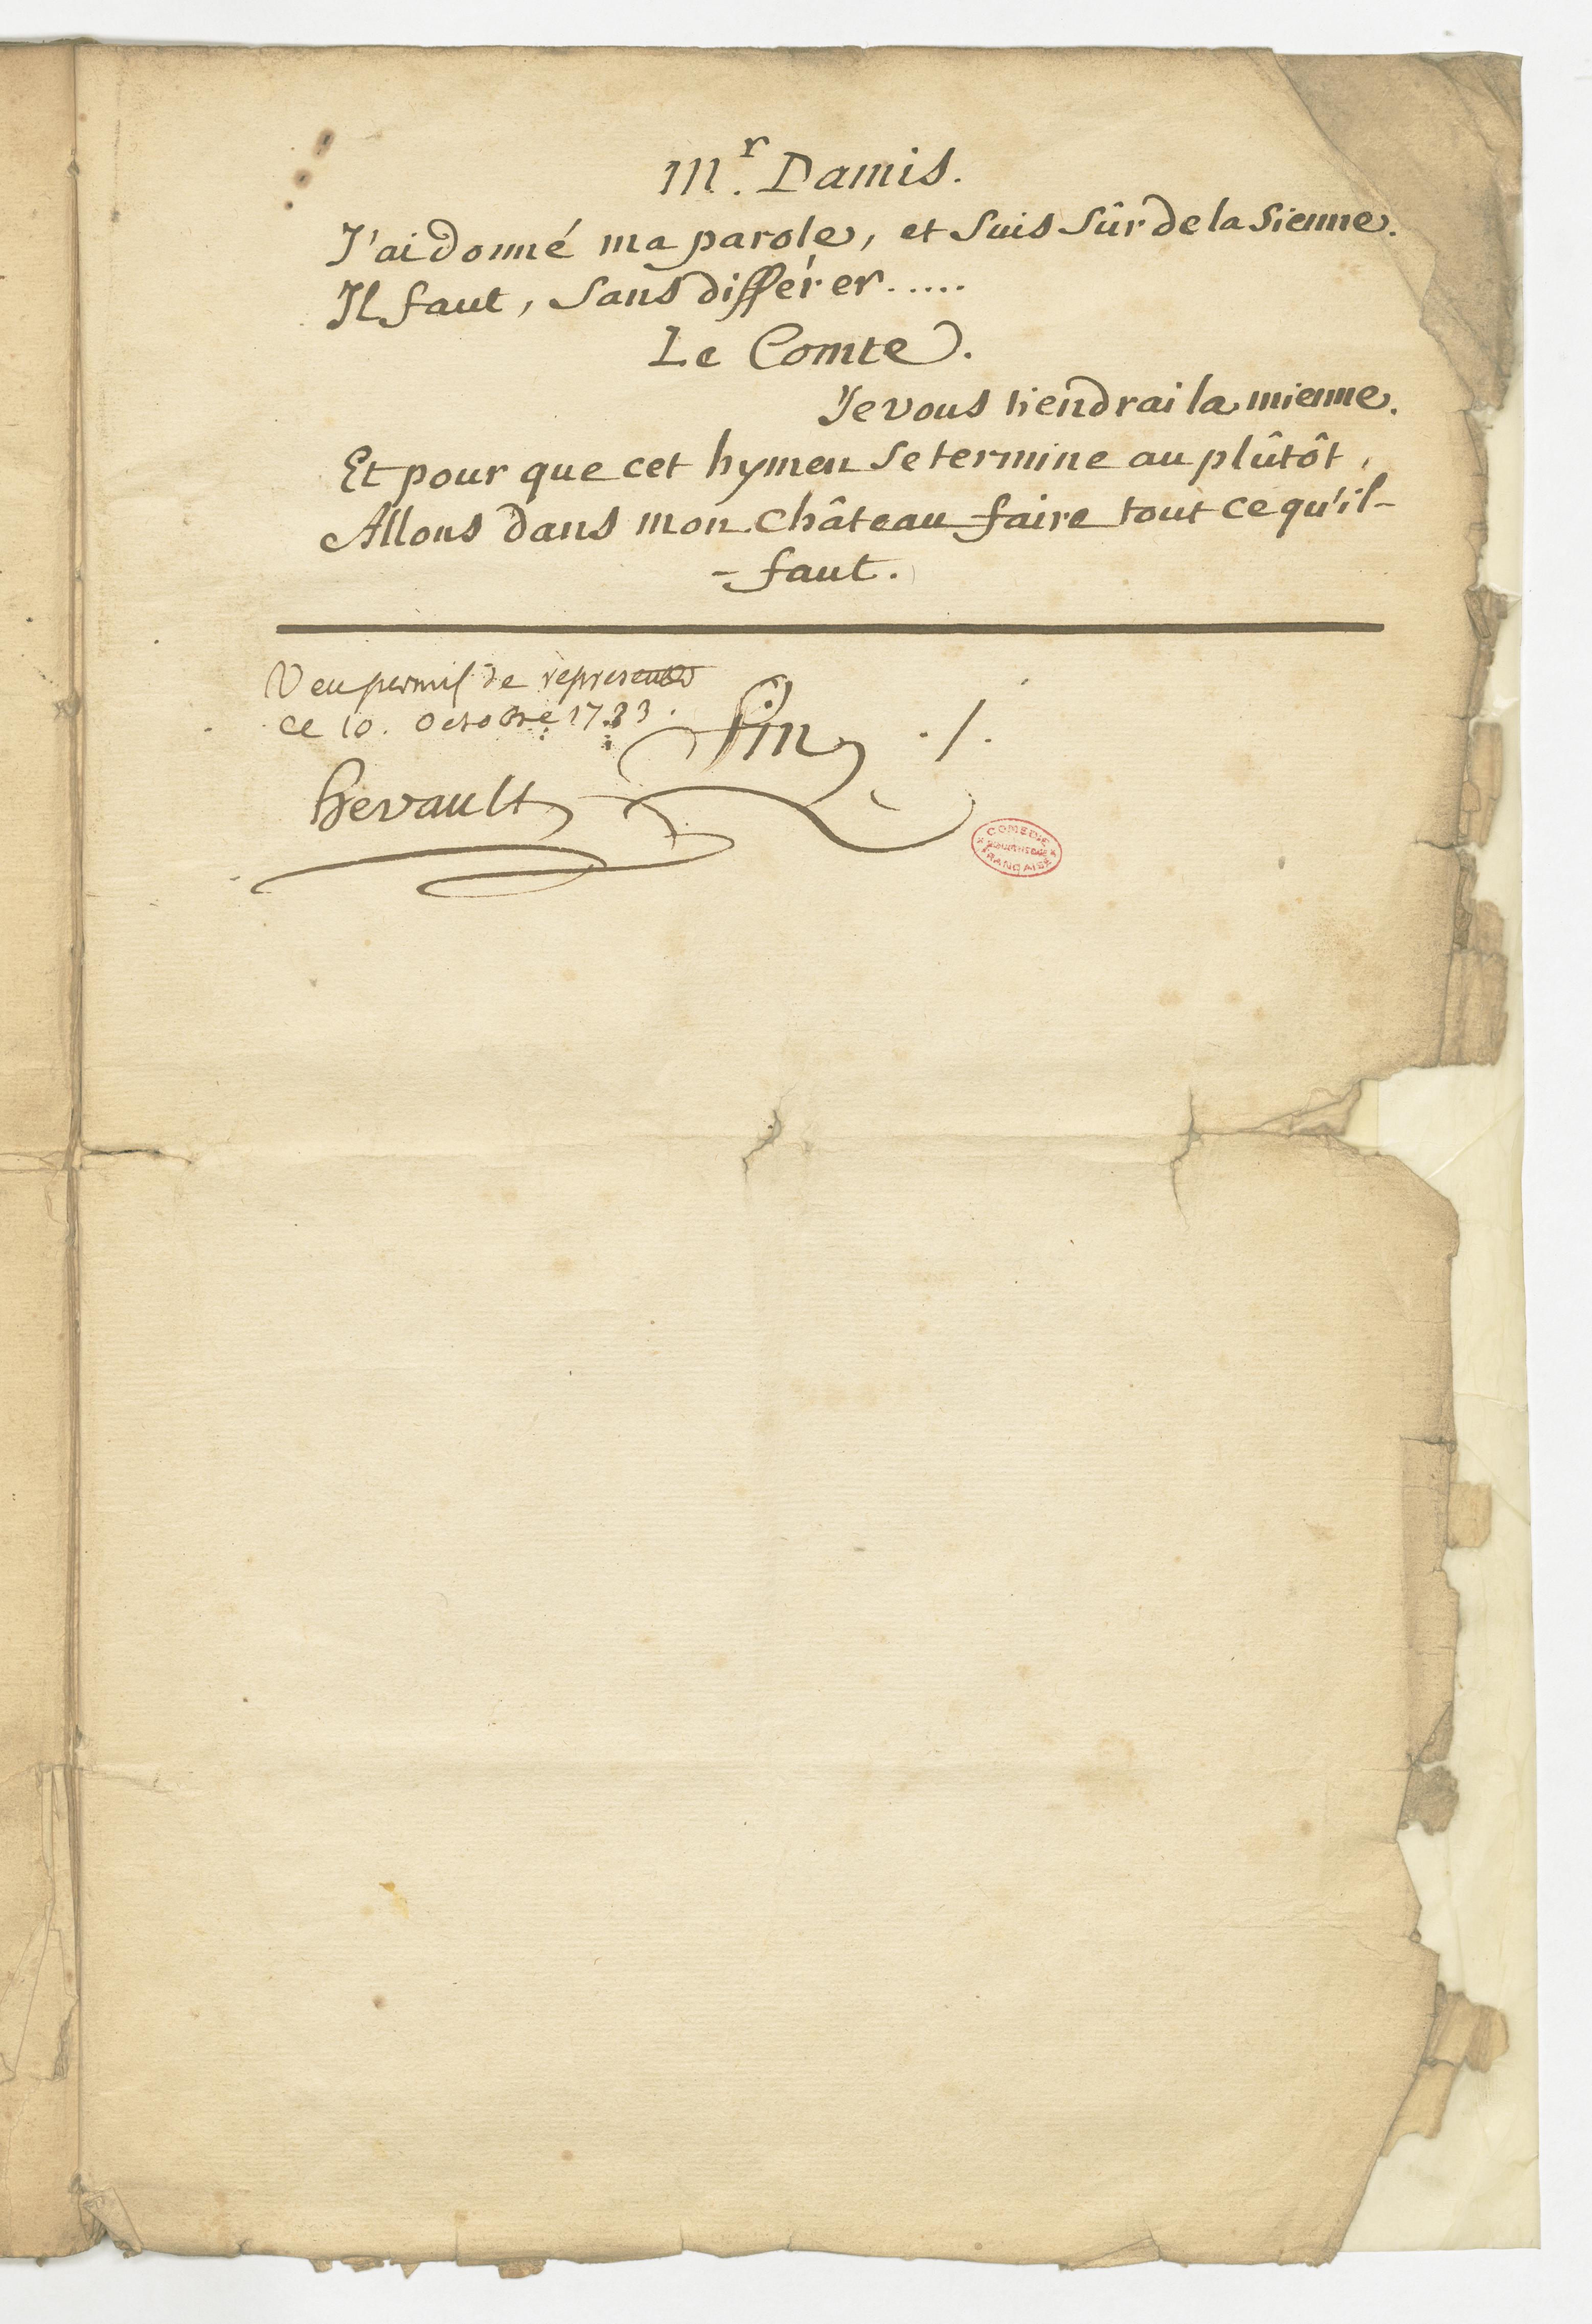 Mr. Damis.
J'ai donné ma parole, et suis sûr de la sienne.
Il faut, sans différer.....
Le Comte.
Je vous tiendrai la mienne.
Et pour que cet hymen se termine au plûtôt,
Allons dans mon château faire tout ce qu'il-
-faut.
Veu permis de representer
ce 10. octobre 1783.
fin ./.
hevault
COMEDIE
BIBLIOTHEQUE
FRANCAISE